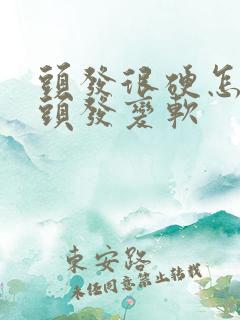 頭發很硬怎
頭發變軟
東安路
未經同意禁止轉載